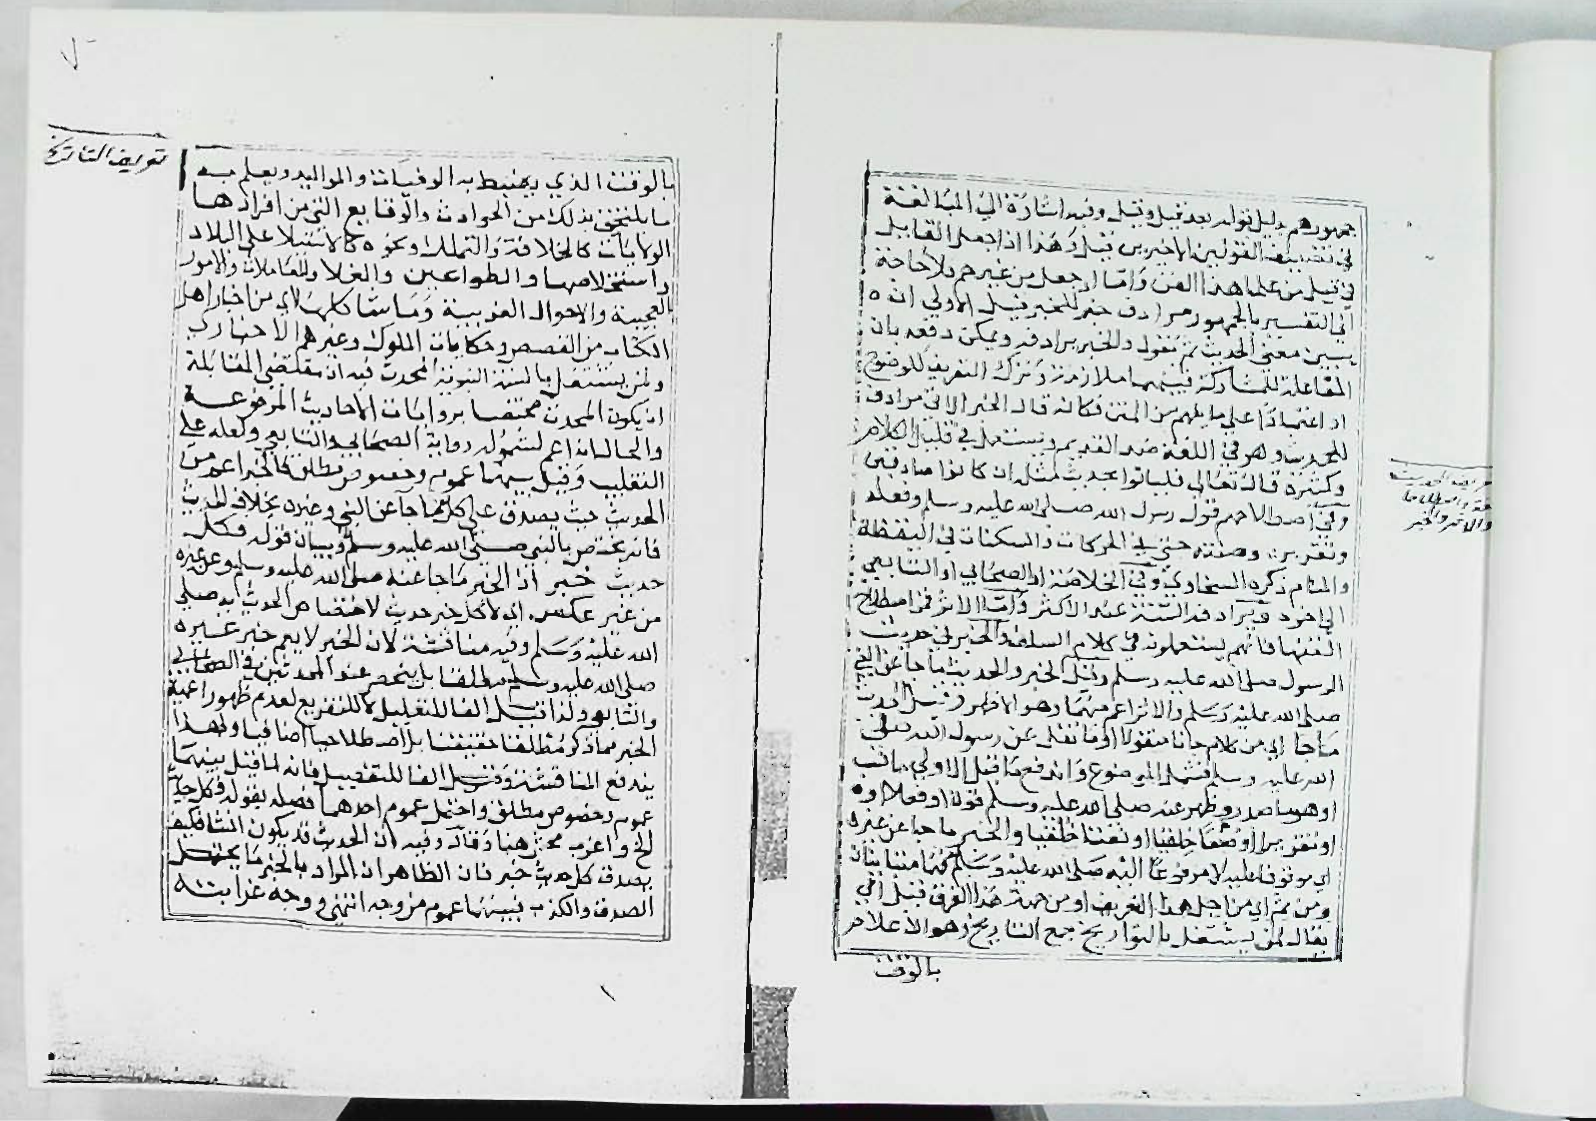 جمهورهم بدليل قوله بعد قيل وقيل وفيه اشارة الي المبالغة
في تضعيف القولين الاخيرين قيل وهذا اذا جعل القايل
في قيل من علما هذا الفن واما لو جعل من غيرهم فلا حاجة
الي التفسير بالجمهور مرادف خبر للخبر قيل الاولي ان
يبين معني الحديث ثم يقول والخبر يرادفه ويمكن دفعه بان
المفاعلة للمشاركة فبينهما ملازمة وترك التعريف للوضوح
او اعتمادا علي ما يفهم من المتن فكانه قال الخبر الاتي مرادف
للحديث وهو في اللغة ضد القديم ويستعمل في قليل الكلام
وكثيره قال تعالي فلياتوا بحديث مثله ان كانوا صادقين
وفي اصطلاحهم قول رسول الله صلي الله عليه وسلم وفعله
وتقريره وصفته حتي في الحركات والسكنات في اليقظة
والمنام ذكره السخاوي وفي الخلاصة او الصحابي او التابعي
الي اخره ويرادفه السنة عند الاكثر واما الاثر فمن اصطلاح
الفقها فانهم يستعملونه في كلام السلف والخبر في حديث
الرسول صلي الله عليه وسلم وقيل الخبر والحديث ما جا عن النبي
صلي الله عليه وسلم والاثر اعم منهما وهو الاظهر وقيل الحديث
ما جا اي من كلام جا منقولا او ما نقل عن رسول الله صلي
الله عليه وسلم فشمل الموضوع واندفع ما قيل الاولي
او هو ما صدر وظهر عنه صلي الله عليه وسلم قولا او فعلا او
او تقريرا او وصفا خلقيا او نعتا خلقيا والخبر ما جا عن غيره
اي موقوفا عليه لا مرفوعا اليه صلي الله عليه وسلم فهما متباينان
ومن ثم اي من اجل هذا التعريف او من جهة هذا الفرق قيل اي
يقال لمن يشتغل بالتواريخ جمع التاريخ وهو الاعلام
بالوقت
تعريف الحديث
والاثر والخبر
تعريف التاريخ
بالوقت الذي يضبط به الوفيات والمواليد ويعلم به
ما يلتحق بذلك من الحوادث والوقايع التي من افرادها
الولايات كالخلافة والتملك ونحوه كالاستيلا علي البلاد
واستخلاصها والطواعين والغلا والمعاملات والامور
العجيبة والاحوال الغريبة وما شاكلها لاي من اخبار اهل
الكتاب من القصص وحكايات الملوك وغيرهم الاخباري
ولمن يشتغل بالسنة النبوية المحدث فيه ان مقتضي المقابلة
ان يكون المحدث مختصا بروايات الاحاديث المرفوعة
والحال انه اعم لشموله رواية الصحابي والتابعي ولعله علي
التغليب وقيل بينهما عموم وخصوص مطلق فالخبر اعم من
الحديث حيث يصدق علي كل ما جا عن النبي وغيره بخلاف الحديث
فانه يختص بالنبي صلي الله عليه وسلم وبيانه قوله فكل
حديث خبر اذ الخبر ما جا عنه صلي الله عليه وسلم وعن غيره
من غير عكس اي لا كل خبر حديث لاختصاص الحديث به صلي
الله عليه وسلم وفيه مناقشة لان الخبر لا يعم خبر غيره
صلي الله عليه وسلم مطلقا بل ينحصر عند المحدثين في الصحابي
والتابعي ولذا قيل الفا للتعليل لا للتفريع لعدم ظهور اعمية
الخبر مما ذكر مطلقا حقيقيا بل اصطلاحيا اضافيا وبهذا
يندفع المناقشة وقيل الفا للتفصيل فانه لما قيل بينهما
عموم وخصوص مطلق واحتمل عموم احدهما فصله بقوله فكل حديث
الخ واغرب محش هنا وقال وفيه ان الحديث قد يكون انشا فكيف
يصدق كل حديث خبر فان الظاهر ان المراد بالخبر ما يحتمل
الصدق والكذب فبينهما عموم من وجه انتهي ووجه غرابته